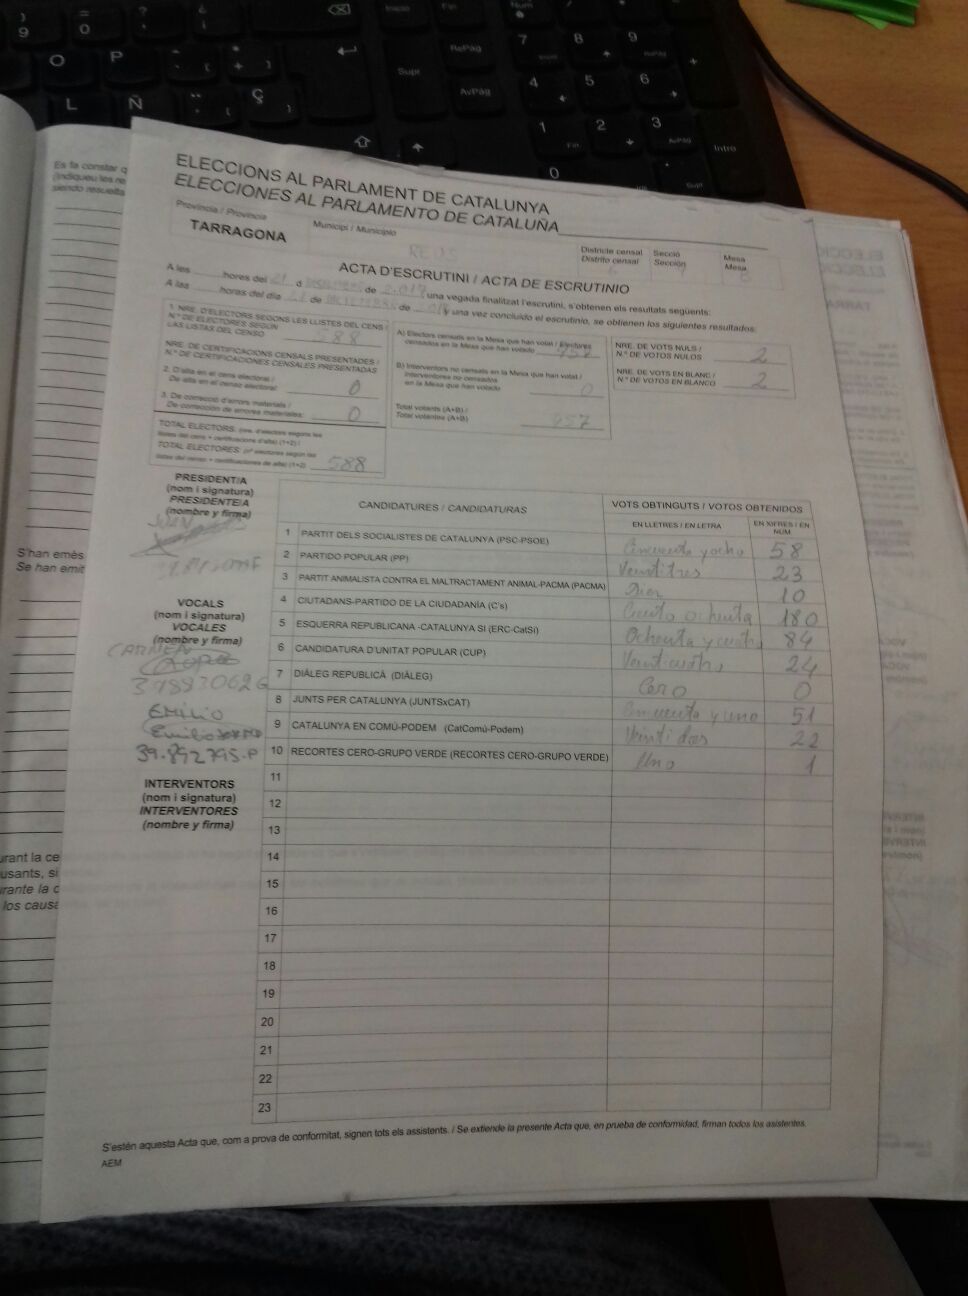 ELECCIONS AL PARLAMENT DE CATALUNYA
ELECCIONES AL PARLAMENTO DE CATALUÑA
Província / Provincia
TARRAGONA
Municipi / Municipio
REUS
Districte censal
Distrito censal
Secció
Sección
Mesa
Mesa
B
ACTA D'ESCRUTINI / ACTA DE ESCRUTINIO
A les hores del 21 d de 2.017, una vegada finalitzat l'escrutini, s'obtenen els resultats següents:
A las horas del día 21 de de y una vez concluido el escrutinio, se obtienen los siguientes resultados:
1. NRE. D'ELECTORS SEGONS LES LLISTES DEL CENS /
N.º DE ELECTORES SEGÚN
LAS LISTAS DEL CENSO 588
NRE. DE CERTIFICACIONS CENSALS PRESENTADES /
N.º DE CERTIFICACIONES CENSALES PRESENTADAS
2. D'alta en el cens electoral /
De alta en el censo electoral: 0
3. De correcció d'errors materials /
De corrección de errores materiales: 0
TOTAL ELECTORS: (nre. d'electors segons les
llistes del cens + certificacions d'alta) (1+2) /
TOTAL ELECTORES: (nº electores según las
listas del censo + certificaciones de alta) (1+2) 588
A) Electors censats en la Mesa que han votat / Electores
censados en la Mesa que han votado 457
B) Interventors no censats en la Mesa que han votat /
Interventores no censados
en la Mesa que han votado 0
Total votants (A+B) /
Total votantes (A+B) 457
NRE. DE VOTS NULS /
N.º DE VOTOS NULOS 2
NRE. DE VOTS EN BLANC /
N.º DE VOTOS EN BLANCO 2
PRESIDENT/A
(nom i signatura)
PRESIDENTE/A
(nombre y firma)
VOCALS
(nom i signatura)
VOCALES
(nombre y firma)
EMILIO
39.892.795-P
INTERVENTORS
(nom i signatura)
INTERVENTORES
(nombre y firma)
CANDIDATURES / CANDIDATURAS
VOTS OBTINGUTS / VOTOS OBTENIDOS
EN LLETRES / EN LETRA
EN XIFRES / EN NUM
1 PARTIT DELS SOCIALISTES DE CATALUNYA (PSC-PSOE) Cincuenta y ocho 58
2 PARTIDO POPULAR (PP) Veintitres 23
3 PARTIT ANIMALISTA CONTRA EL MALTRACTAMENT ANIMAL-PACMA (PACMA) Diez 10
4 CIUTADANS-PARTIDO DE LA CIUDADANÍA (C's) Ciento ochenta 180
5 ESQUERRA REPUBLICANA -CATALUNYA SÍ (ERC-CatSí) Ochenta y cuatro 84
6 CANDIDATURA D'UNITAT POPULAR (CUP) Veinticuatro 24
7 DIÀLEG REPUBLICÀ (DIÀLEG) Cero 0
8 JUNTS PER CATALUNYA (JUNTSxCAT) Cincuenta y uno 51
9 CATALUNYA EN COMÚ-PODEM (CatComú-Podem) Veintidos 22
10 RECORTES CERO-GRUPO VERDE (RECORTES CERO-GRUPO VERDE) Uno 1
11
12
13
14
15
16
17
18
19
20
21
22
23
S'estén aquesta Acta que, com a prova de conformitat, signen tots els assistents. / Se extiende la presente Acta que, en prueba de conformidad, firman todos los asistentes.
AEM